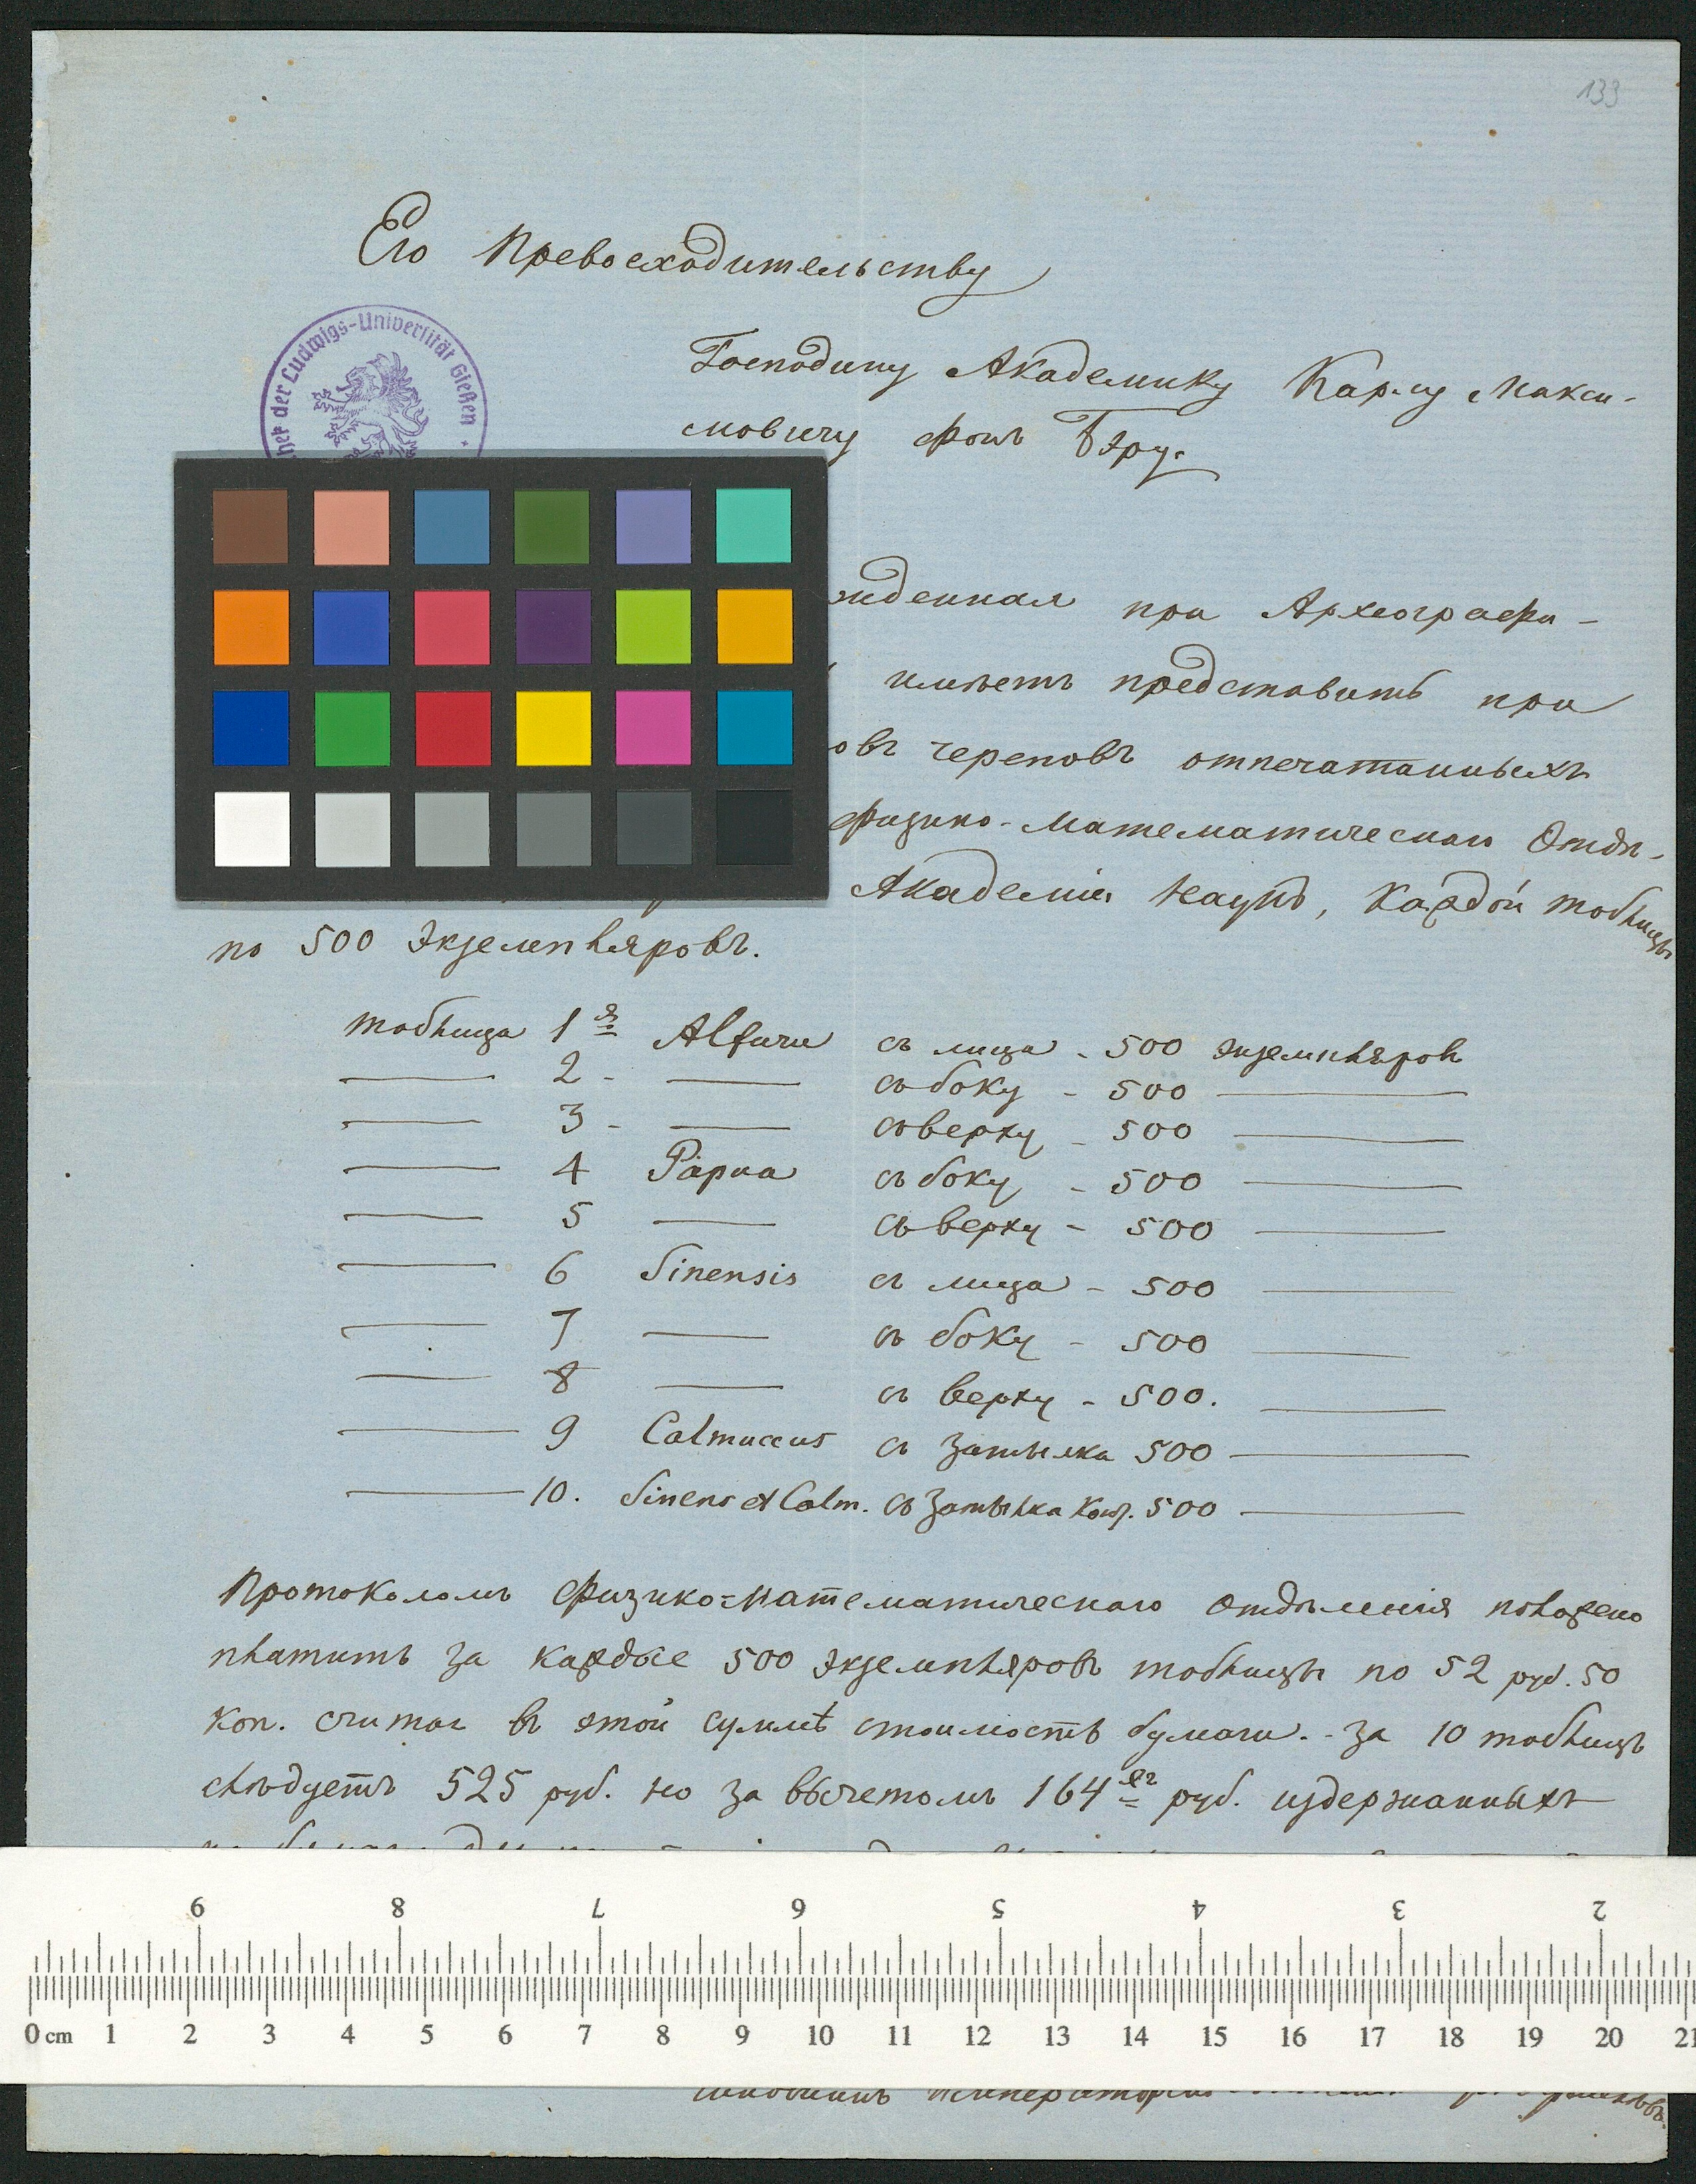 133
Его Превосходительству
Господину Академику Карлу Макси-
мовичу фонъ Бэру.
der Ludwigs-Universität Gießen
жденная при Археографи-
имѣетъ представить при
овъ череповъ отпечатанныхъ
физико-математическаго Отдѣ-
Академіи Наукъ, каждой таблицы
по 500 экземпляровъ.
таблица 1я Alfuru съ лица - 500 экземпляровъ
2 - съ боку - 500
3 - съ верху - 500
4 Papua съ боку - 500
5 съ верху - 500
6 Sinensis съ лица - 500
7 съ боку - 500
8 съ верху - 500.
9 Calmuccus съ затылка 500
10. Sinens et Calm. съ затылка 500
Протоколомъ физико=математическаго отдѣленія положено
платить за каждые 500 экземпляровъ таблицы по 52 руб. 50
коп. считая въ этой суммѣ стоимость бумаги. - За 10 таблицъ
слѣдуетъ 525 руб. но за вычетомъ 164 руб. издержанныхъ
9 8 7 6 5 4 3 2
0 cm 1 2 3 4 5 6 7 8 9 10 11 12 13 14 15 16 17 18 19 20 21